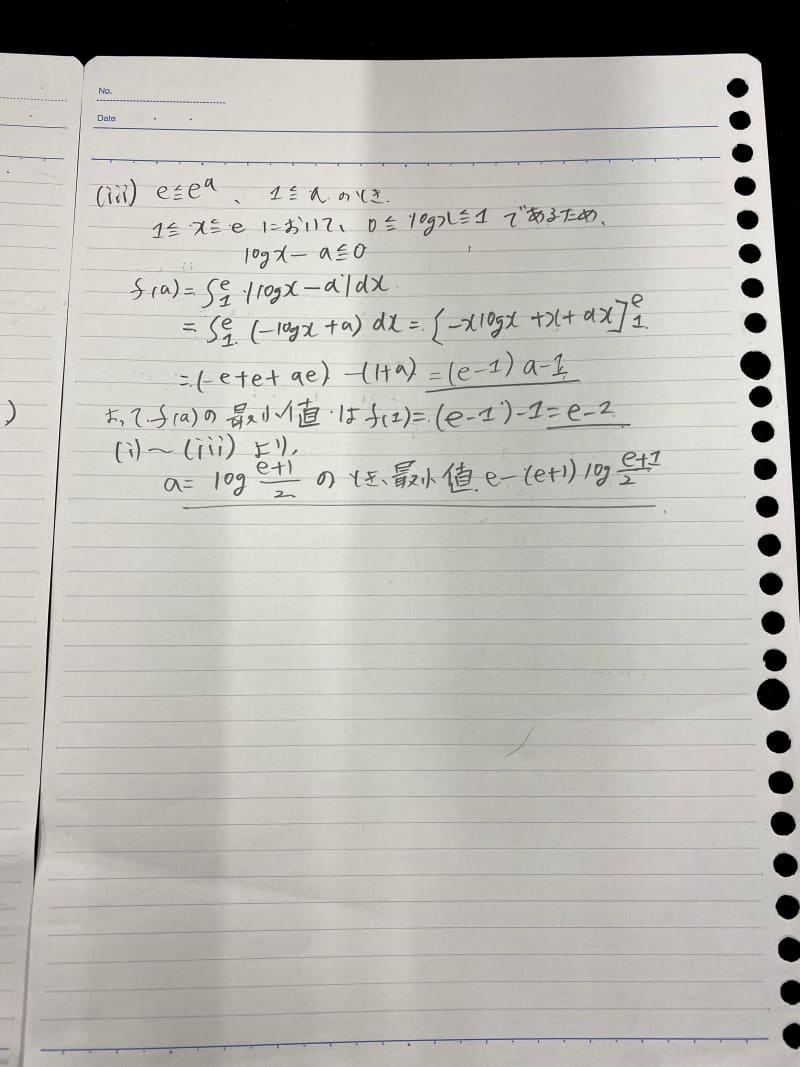 No.
Date
(iii) e≦e^a、1≦aのとき、
1≦x≦eにおいて、0≦logx≦1であるため、
logx-a≦0
f(a)=∫₁^e |logx-a|dx
=∫₁^e (-logx+a)dx=[-xlogx+x+ax]₁^e
=(-e+e+ae)-(1+a)=(e-1)a-1
よって、f(a)の最小値はf(1)=(e-1)-1=e-2
(i)~(iii)より、
a=log (e+1)/2 のとき、最小値 e-(e+1)log (e+1)/2
)